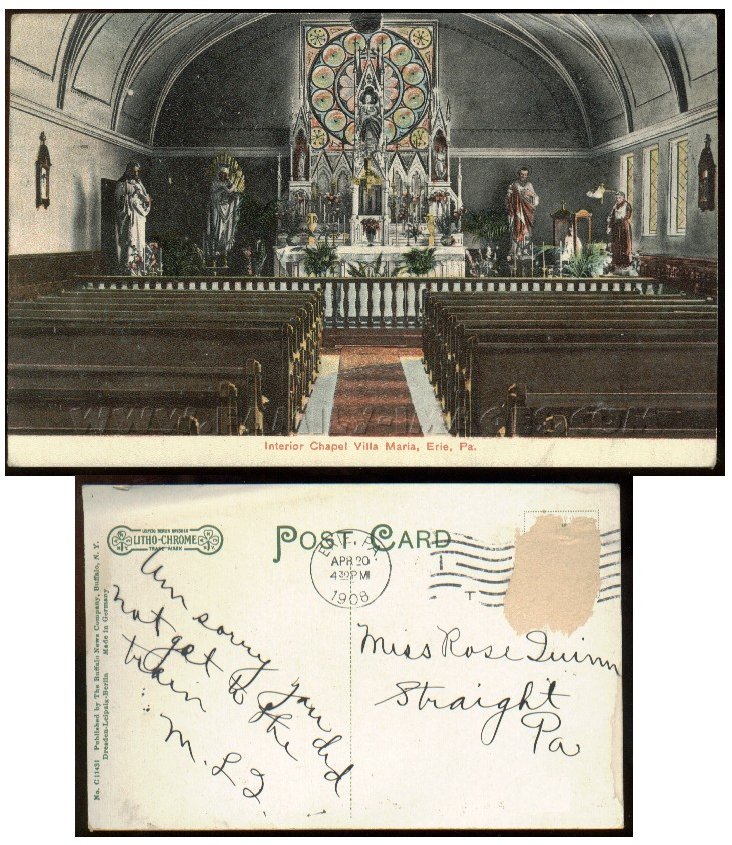 Interior Chapel Villa Maria, Erie, Pa.
LITHO-CHROME
TRADE MARK
POST CARD
APR 20
4 30 PM
1908
No. C 11431 Published by The Buffalo News Company, Buffalo, N. Y.
Dresden-Leipzig-Berlin Made in Germany
Am sorry you did
not get to the
train
M. L. Q.
Miss Rose Quinn
Straight
Pa